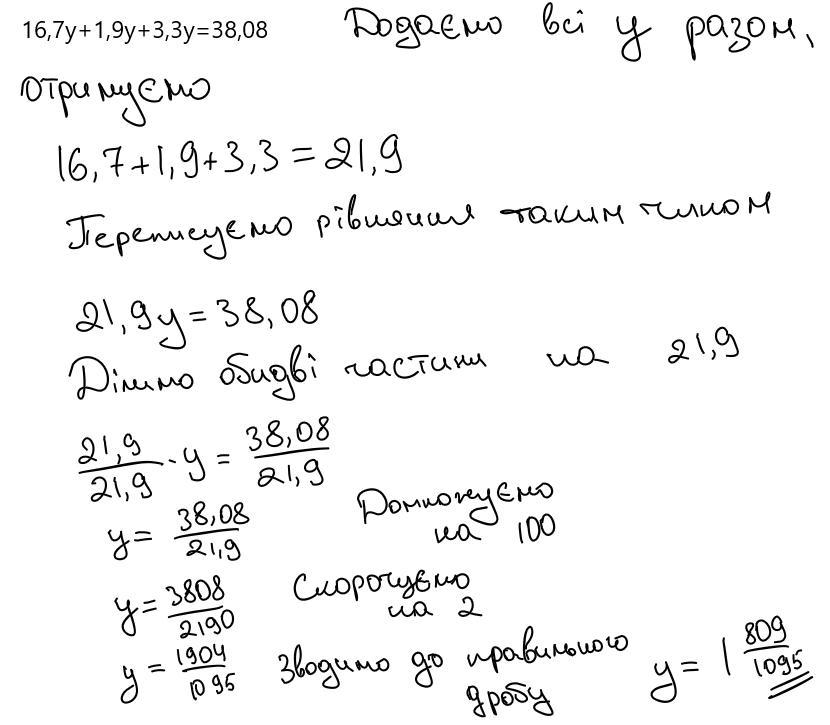 16,7y+1,9y+3,3y=38,08 Додаємо всі y разом,
отримуємо
16,7+1,9+3,3=21,9
Переписуємо рівняння таким чином
21,9y=38,08
Ділимо обидві частини на 21,9
21,9/21,9 · y = 38,08/21,9
y= 38,08/21,9 Домножуємо
на 100
y= 3808/2190 Скорочуємо
на 2
y= 1904/1095 Зводимо до правильного
дробу y= 1 809/1095